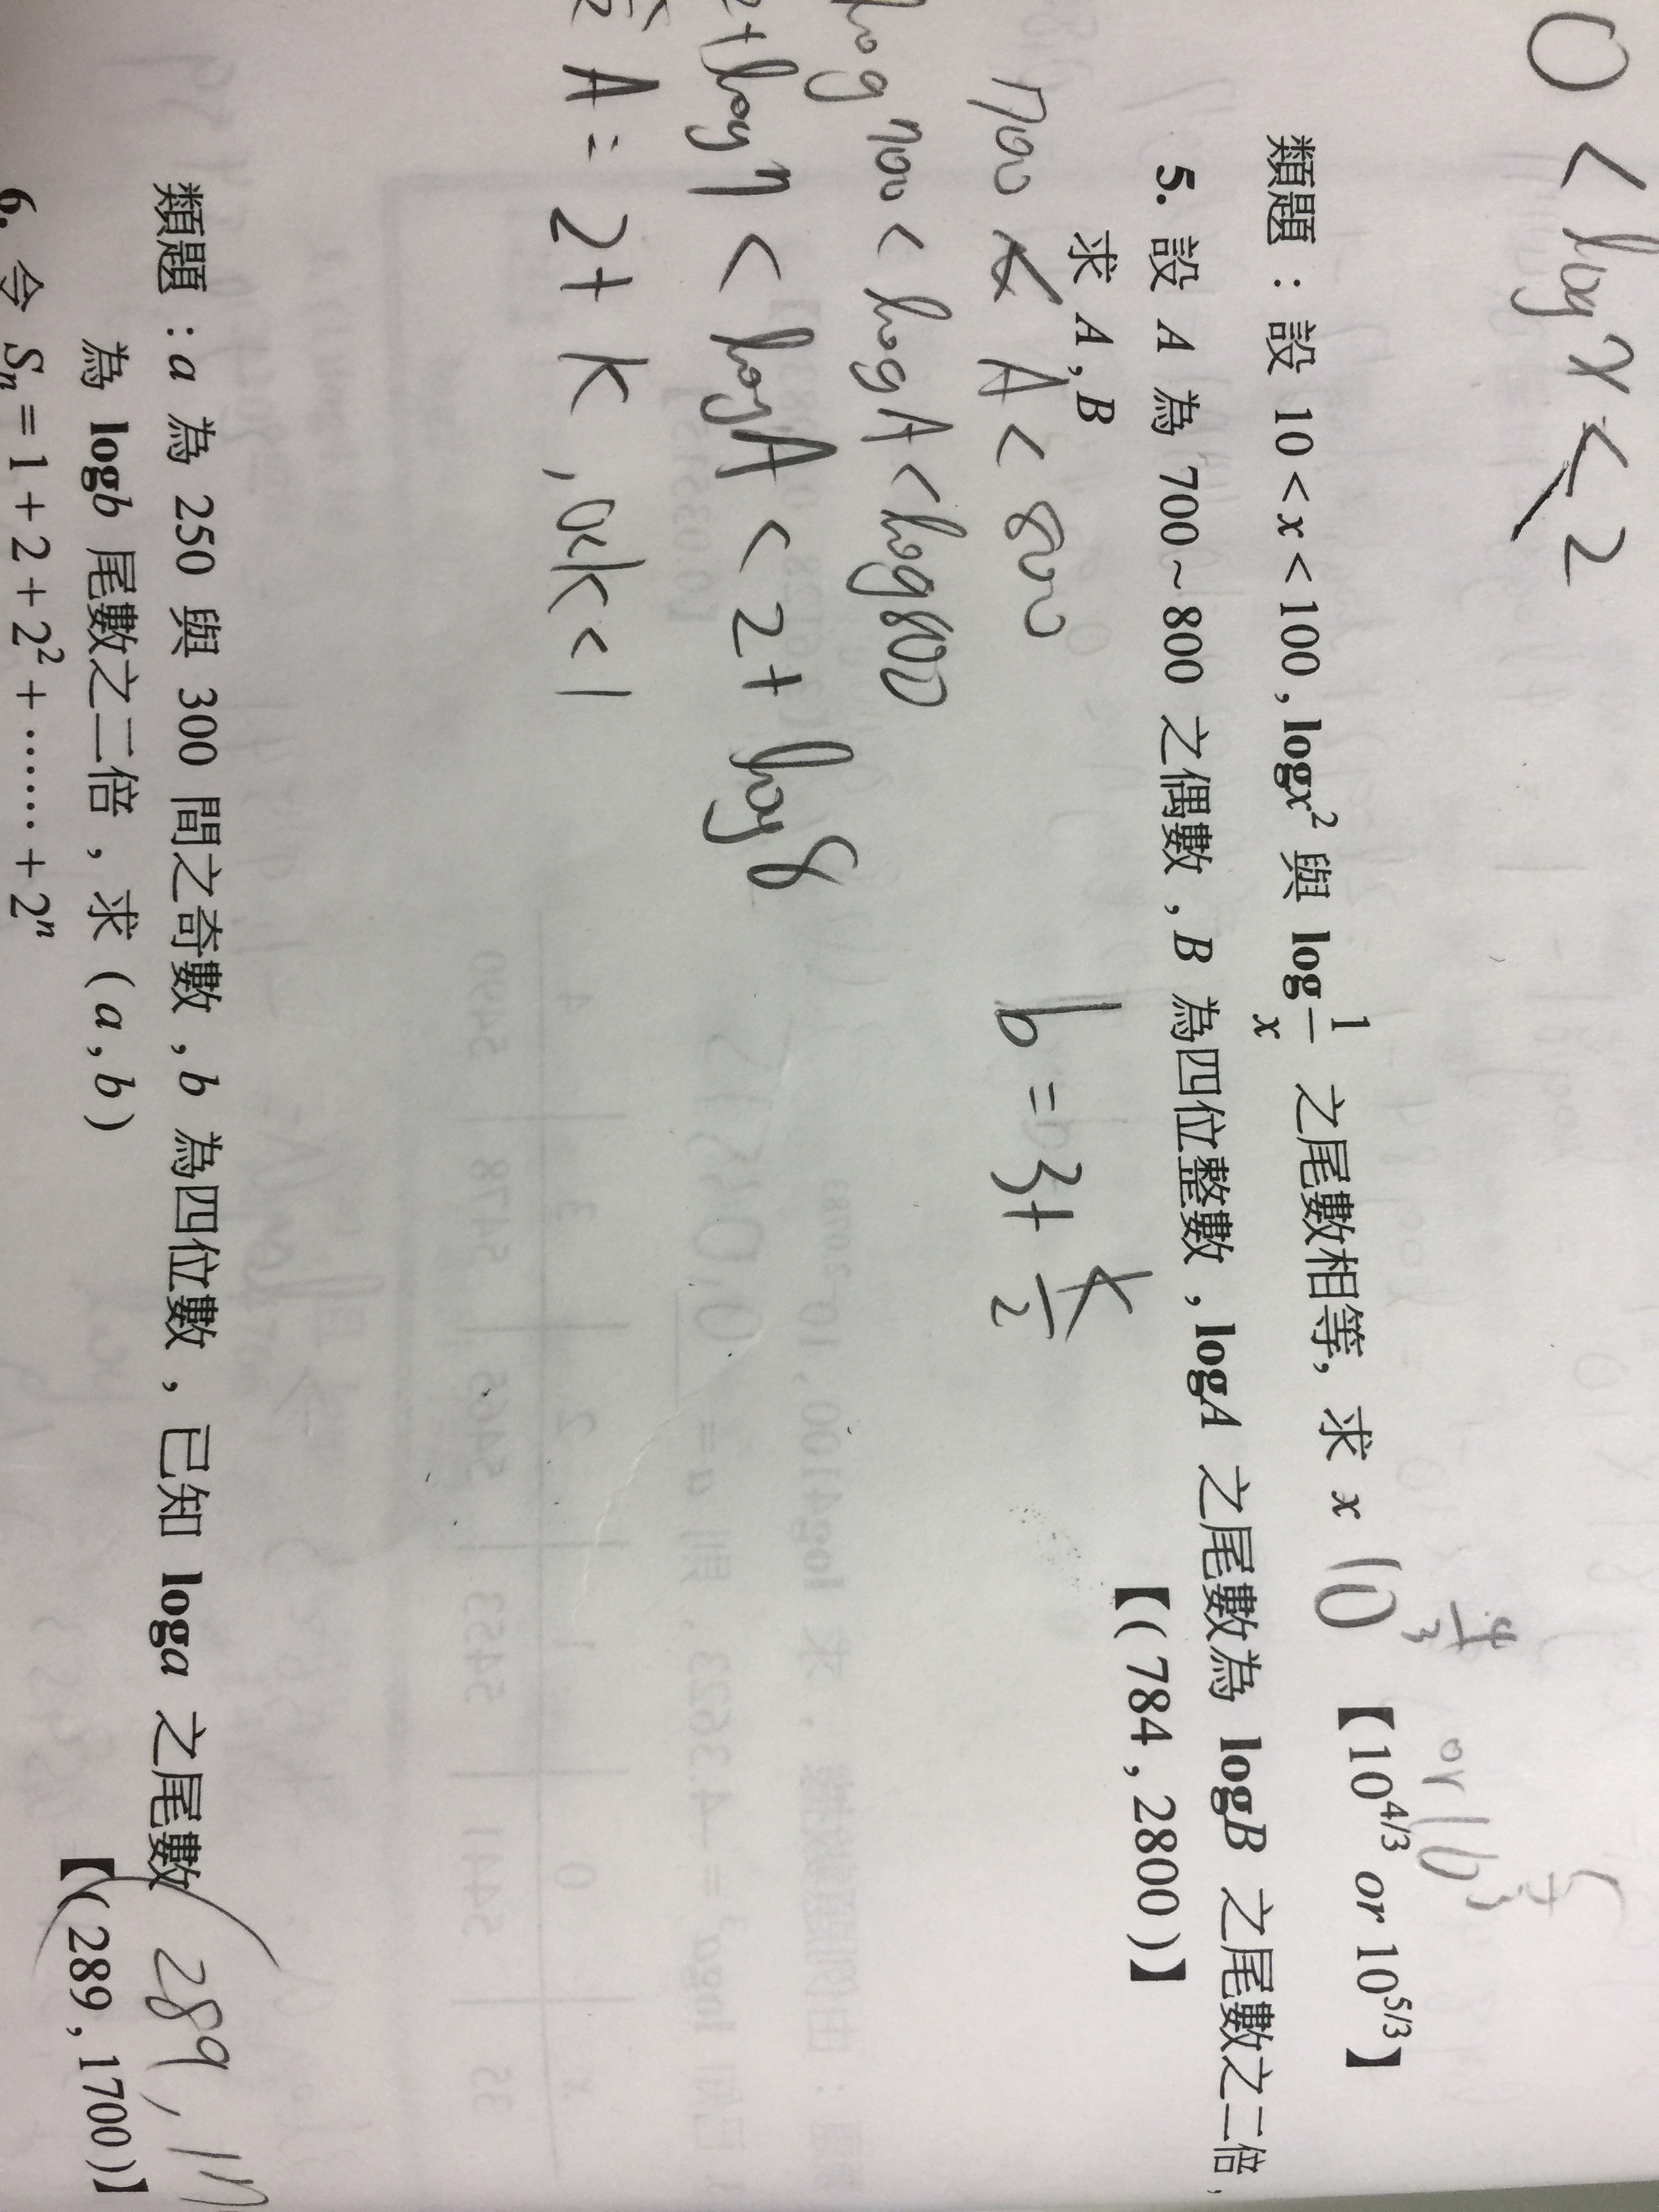 0 < log x < 2
類題：設 10 < x < 100 , logx² 與 log 1/x 之尾數相等, 求 x
10^(4/3) or 10^(5/3)
【10^(4/3) or 10^(5/3)】
5. 設 A 為 700~800 之偶數 , B 為四位整數 , logA 之尾數為 logB 之尾數之二倍 ,
求 A , B
【( 784 , 2800 )】
700 < A < 800
b = 3 + k/2
log 700 < log A < log 800
2 + log 7 < log A < 2 + log 8
A = 2 + k , 0<k<1
類題 : a 為 250 與 300 間之奇數 , b 為四位數 , 已知 loga 之尾數
為 logb 尾數之二倍 , 求 ( a , b )
289 , 17
【( 289 , 1700 )】
6. 令 Sₙ = 1 + 2 + 2² + …… + 2ⁿ